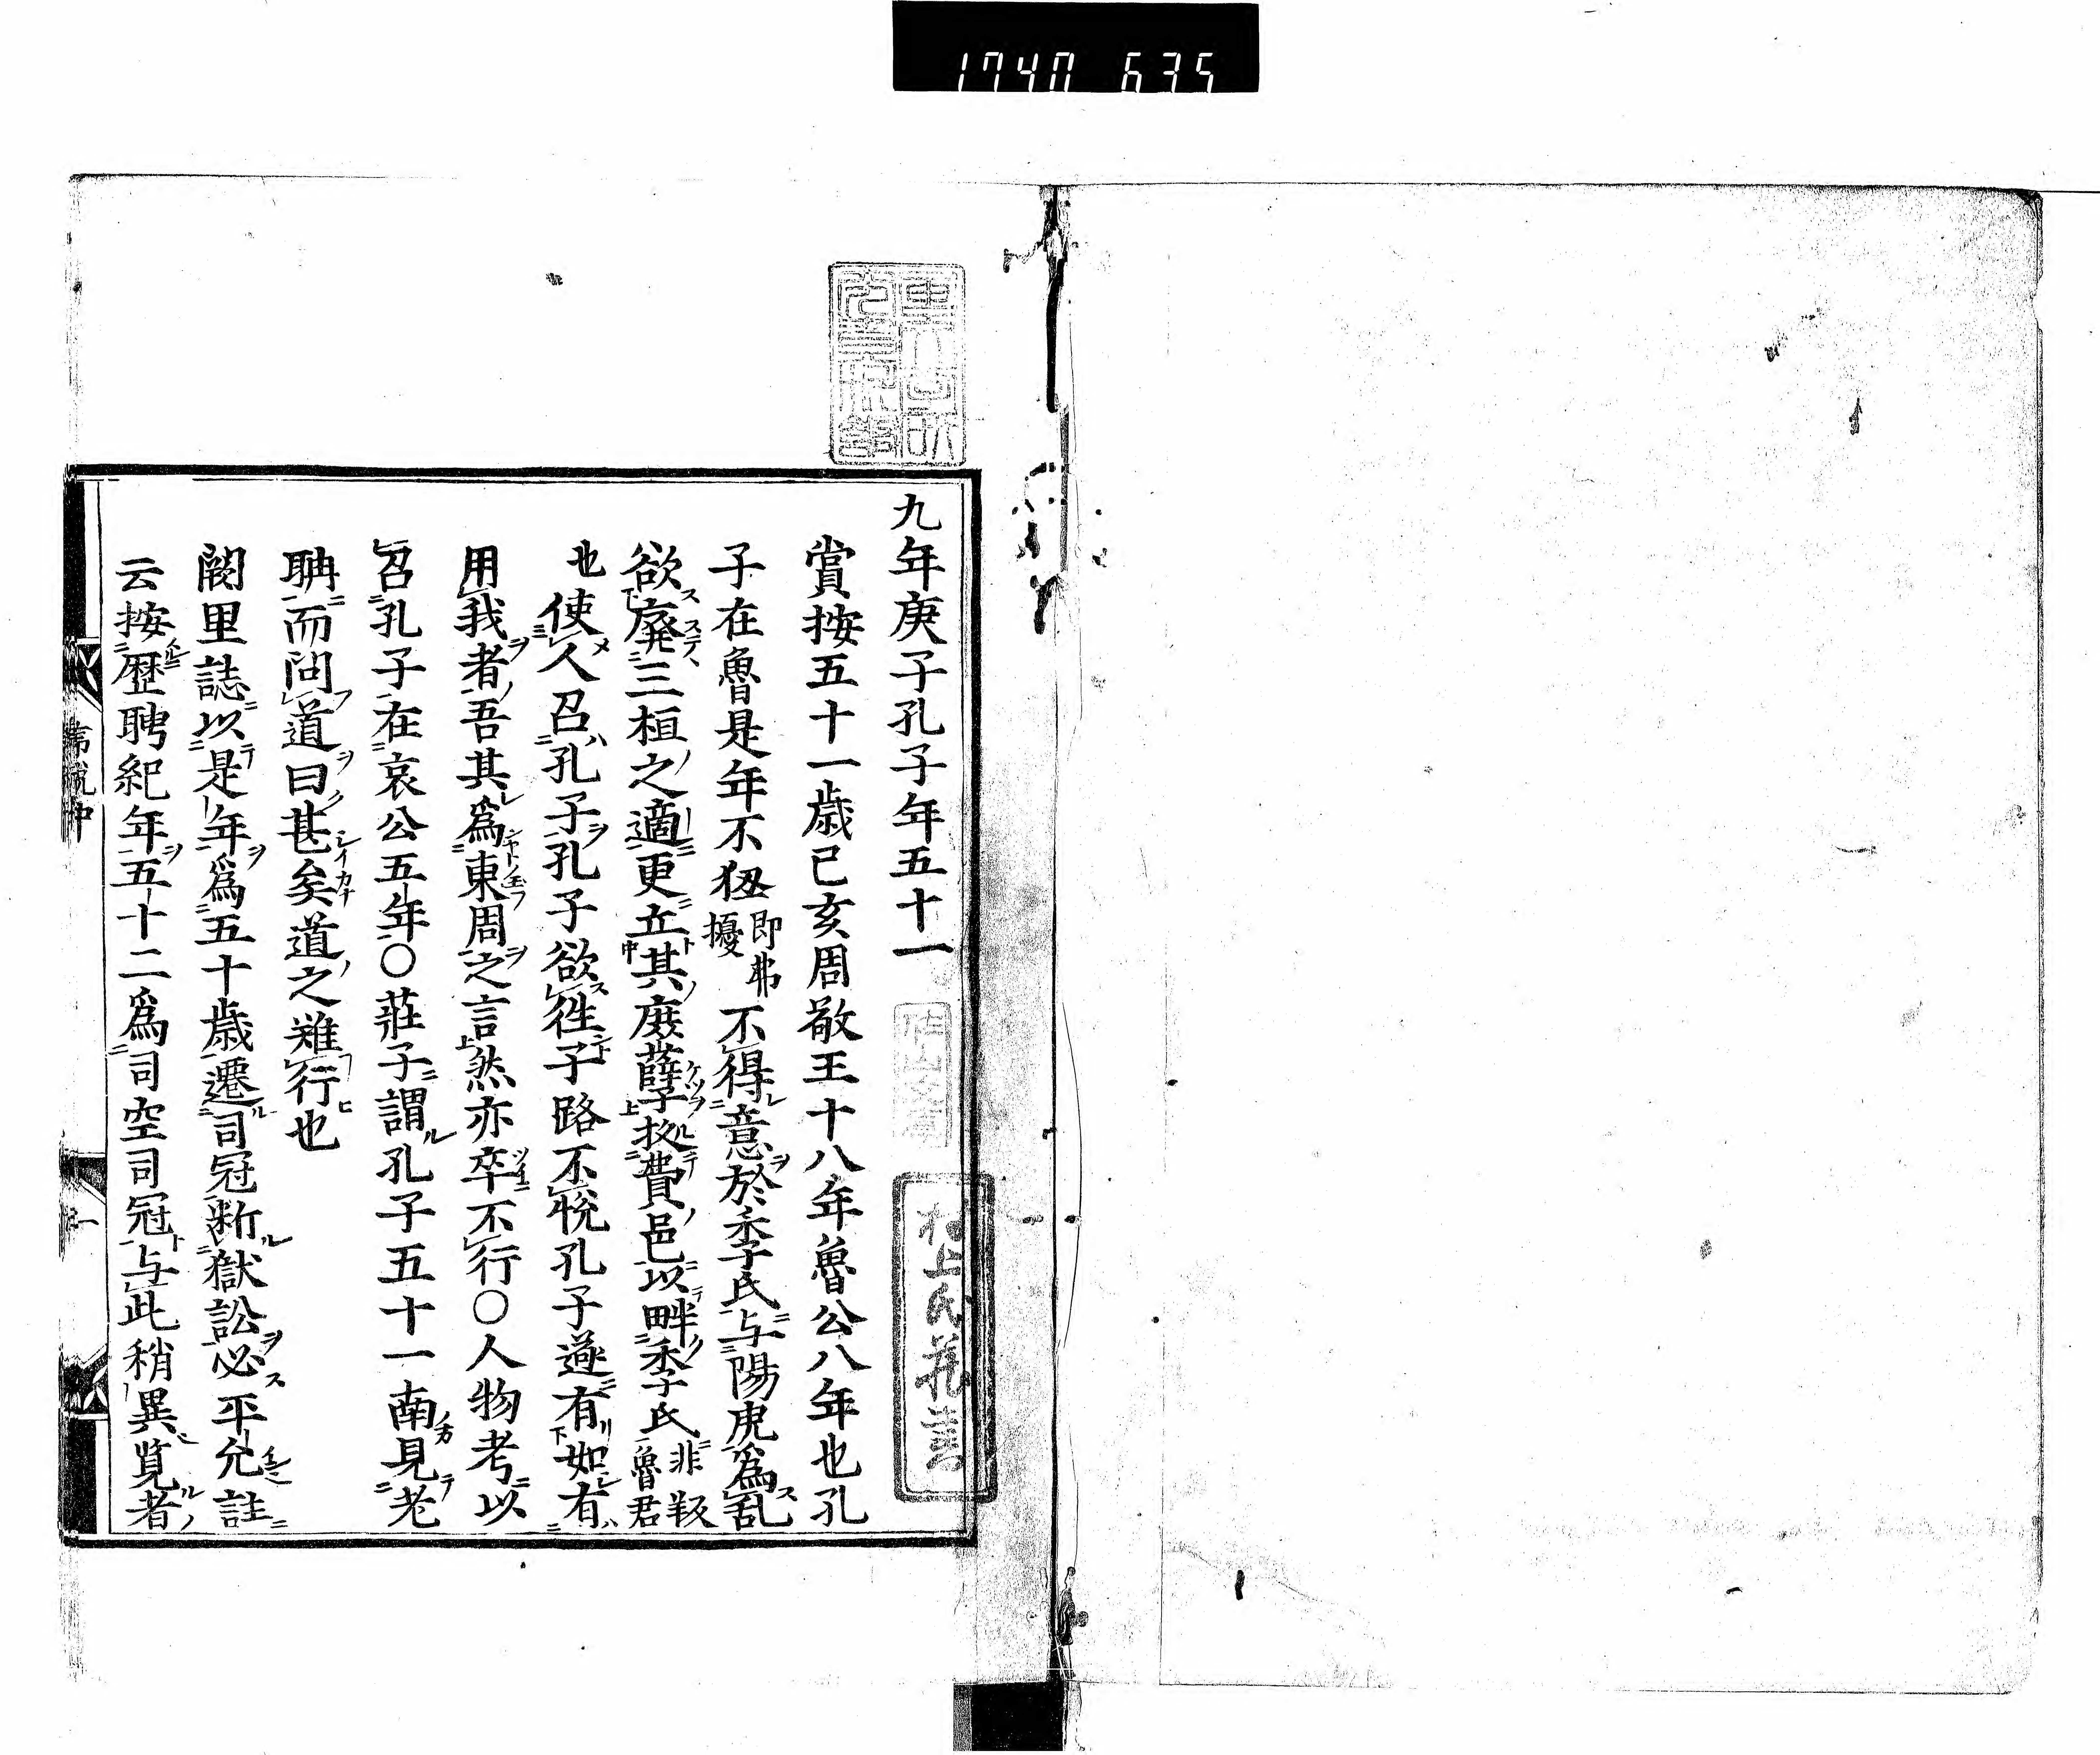 1740 635
九年庚子孔子年五十一
賞按五十一歳己亥周敬王十八年魯公八年也孔
子在魯是年不狃即弗擾不得意於季氏与陽虎為乱
欲廃三桓之適更立其庶孽拠費邑以畔季氏非叛魯君
也使人召孔子孔子欲往子路不悦孔子遂有如有
用我者吾其為東周之言然亦卒不行〇人物考以
召孔子在哀公五年〇莊子謂孔子五十一南見老
聃而問道曰甚矣道之難行也
闕里誌以是年為五十歳遷司冦断獄訟必平允註
云按歴聘紀年五十二為司空司冦与此稍異覧者
村上氏蔵書